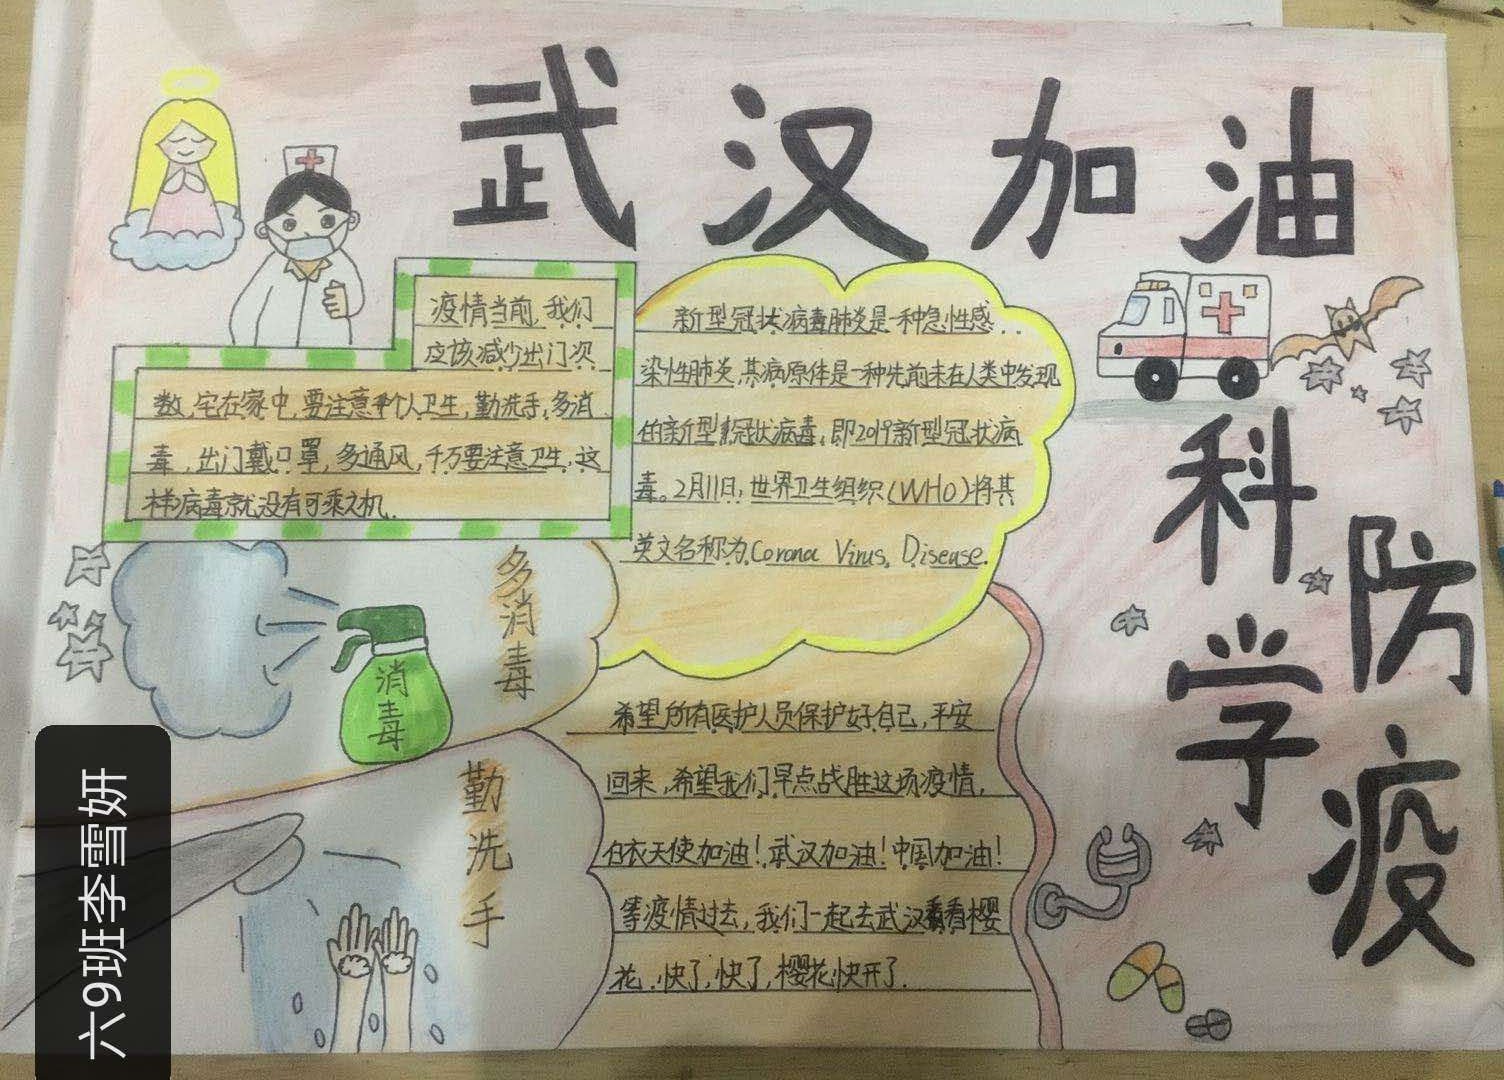 武汉加油
科学
防疫
疫情当前,我们
应该减少出门次
数,宅在家中,要注意个人卫生,勤洗手,多消
毒,出门戴口罩,多通风,千万要注意卫生,这
样病毒就没有可乘之机.
新型冠状病毒肺炎是一种急性感..
染性肺炎,其病原体是一种先前未在人类中发现
的新型冠状病毒,即2019新型冠状病
毒。2月11日,世界卫生组织(WHO)将其
英文名称为Corona Virus Disease.
多消毒
消毒
勤洗手
希望所有医护人员保护好自己,平安
回来,希望我们早点战胜这场疫情,
白衣天使加油!武汉加油!中国加油!
等疫情过去,我们一起去武汉看樱
花,快了,快了,樱花快开了.
六9班李雪妍